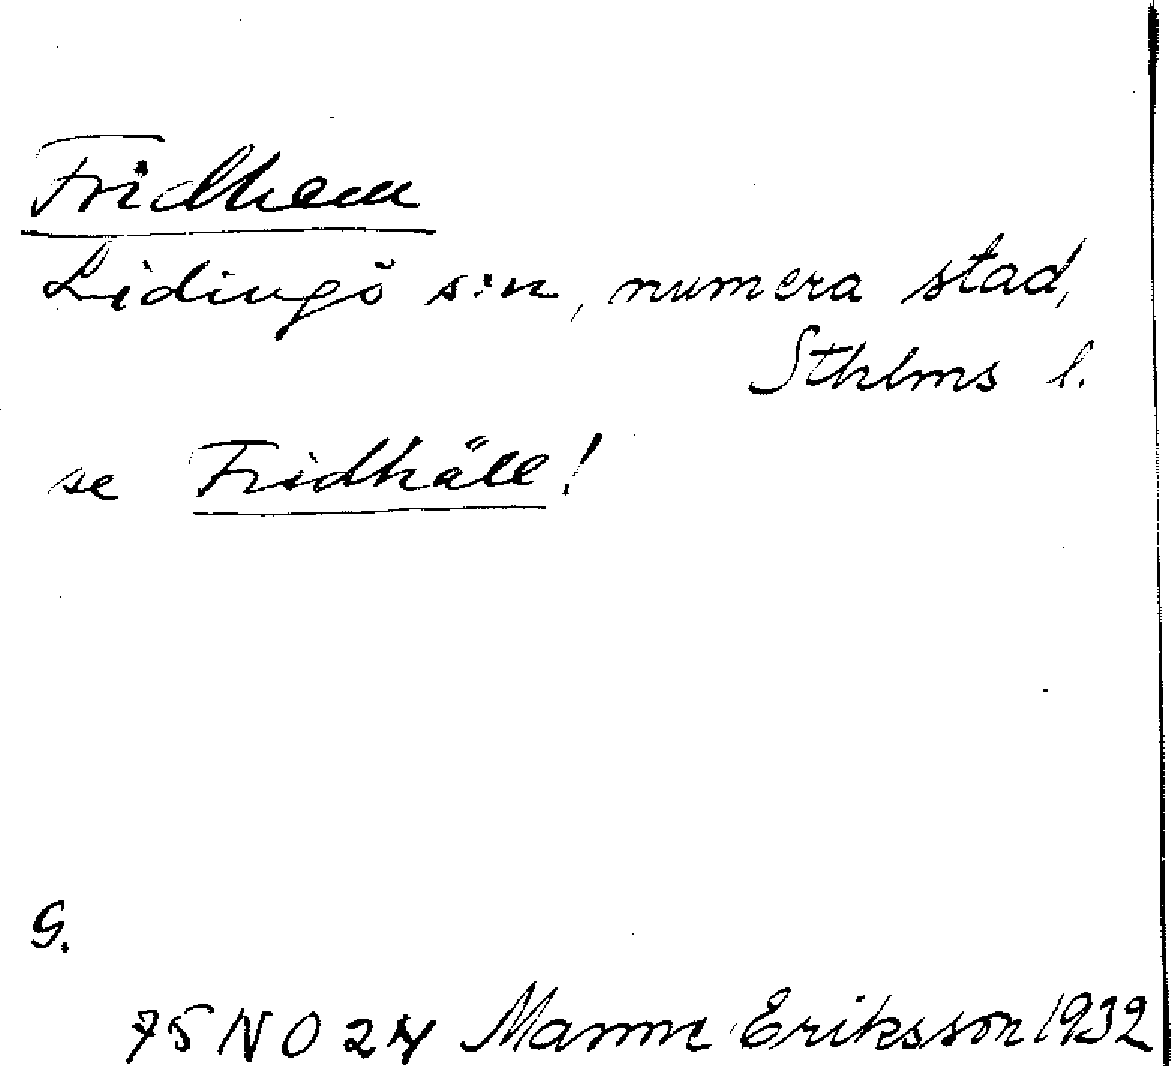 Fridhem
Lidingö s:n, numera stad,
Sthlms l.
se Fridhäll!
G.
75 NO 24 Manne Eriksson 1932